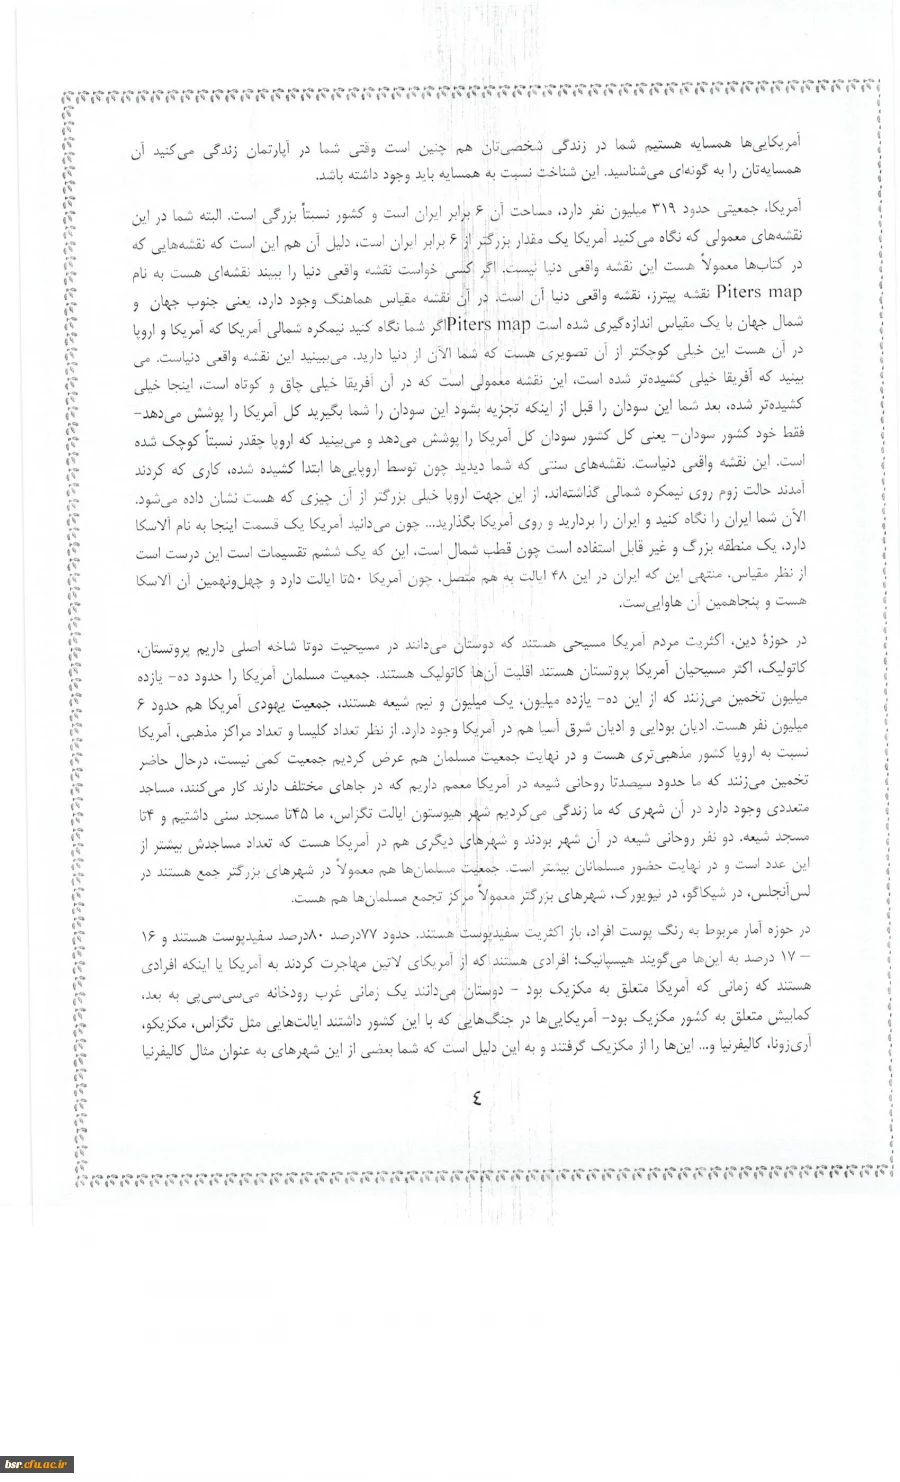 آمریکایی‌ها همسایه هستیم شما در زندگی شخصی‌تان هم چنین است وقتی شما در آپارتمان زندگی می‌کنید آن
همسایه‌تان را به گونه‌ای می‌شناسید. این شناخت نسبت به همسایه باید وجود داشته باشد.
آمریکا، جمعیتی حدود ۳۱۹ میلیون نفر دارد، مساحت آن ۶ برابر ایران است و کشور نسبتاً بزرگی است. البته شما در این
نقشه‌های معمولی که نگاه می‌کنید آمریکا یک مقدار بزرگتر از ۶ برابر ایران است، دلیل آن هم این است که نقشه‌هایی که
در کتاب‌ها معمولاً هست این نقشه واقعی دنیا نیست. اگر کسی خواست نقشه واقعی دنیا را ببیند نقشه‌ای هست به نام
Piters map نقشه پیترز، نقشه واقعی دنیا آن است. در آن نقشه مقیاس هماهنگ وجود دارد، یعنی جنوب جهان و
شمال جهان با یک مقیاس اندازه‌گیری شده است Piters mapاگر شما نگاه کنید نیمکره شمالی آمریکا که آمریکا و اروپا
در آن هست این خیلی کوچکتر از آن تصویری هست که شما الآن از دنیا دارید. می‌بینید این نقشه واقعی دنیاست. می
بینید که آفریقا خیلی کشیده‌تر شده است، این نقشه معمولی است که در آن آفریقا خیلی چاق و کوتاه است، اینجا خیلی
کشیده‌تر شده، بعد شما این سودان را قبل از اینکه تجزیه بشود این سودان را شما بگیرید کل آمریکا را پوشش می‌دهد-
فقط خود کشور سودان- یعنی کل کشور سودان کل آمریکا را پوشش می‌دهد و می‌بینید که اروپا چقدر نسبتاً کوچک شده
است. این نقشه واقعی دنیاست. نقشه‌های سنتی که شما دیدید چون توسط اروپایی‌ها ابتدا کشیده شده، کاری که کردند
آمدند حالت زوم روی نیمکره شمالی گذاشته‌اند. از این جهت اروپا خیلی بزرگتر از آن چیزی که هست نشان داده می‌شود.
الآن شما ایران را نگاه کنید و ایران را بردارید و روی آمریکا بگذارید... چون می‌دانید آمریکا یک قسمت اینجا به نام آلاسکا
دارد، یک منطقه بزرگ و غیر قابل استفاده است چون قطب شمال است، این که یک ششم تقسیمات است این درست است
از نظر مقیاس، منتهی این که ایران در این ۴۸ ایالت به هم متصل، چون آمریکا ۵۰تا ایالت دارد و چهل‌ونهمین آن آلاسکا
هست و پنجاهمین آن هاوایی‌ست.
در حوزهٔ دین، اکثریت مردم آمریکا مسیحی هستند که دوستان می‌دانند در مسیحیت دوتا شاخه اصلی داریم پروتستان،
کاتولیک، اکثر مسیحیان آمریکا پروتستان هستند اقلیت آن‌ها کاتولیک هستند. جمعیت مسلمان آمریکا را حدود ده- یازده
میلیون تخمین می‌زنند که از این ده- یازده میلیون، یک میلیون و نیم شیعه هستند، جمعیت یهودی آمریکا هم حدود ۶
میلیون نفر هست. ادیان بودایی و ادیان شرق آسیا هم در آمریکا وجود دارد. از نظر تعداد کلیسا و تعداد مراکز مذهبی، آمریکا
نسبت به اروپا کشور مذهبی‌تری هست و در نهایت جمعیت مسلمان هم عرض کردیم جمعیت کمی نیست، درحال حاضر
تخمین می‌زنند که ما حدود سیصدتا روحانی شیعه در آمریکا معمم داریم که در جاهای مختلف دارند کار می‌کنند، مساجد
متعددی وجود دارد در آن شهری که ما زندگی می‌کردیم شهر هیوستون ایالت تگزاس، ما ۴۵تا مسجد سنی داشتیم و ۴تا
مسجد شیعه. دو نفر روحانی شیعه در آن شهر بودند و شهرهای دیگری هم در آمریکا هست که تعداد مساجدش بیشتر از
این عدد است و در نهایت حضور مسلمانان بیشتر است. جمعیت مسلمان‌ها هم معمولاً در شهرهای بزرگتر جمع هستند در
لس‌آنجلس، در شیکاگو، در نیویورک، شهرهای بزرگتر معمولاً مرکز تجمع مسلمان‌ها هم هست.
در حوزه آمار مربوط به رنگ پوست افراد، باز اکثریت سفیدپوست هستند. حدود ۷۷درصد ۸۰درصد سفیدپوست هستند و ۱۶
– ۱۷ درصد به این‌ها می‌گویند هیسپانیک؛ افرادی هستند که از آمریکای لاتین مهاجرت کردند به آمریکا یا اینکه افرادی
هستند که زمانی که آمریکا متعلق به مکزیک بود – دوستان می‌دانند یک زمانی غرب رودخانه می‌سی‌سی‌پی به بعد،
کمابیش متعلق به کشور مکزیک بود- آمریکایی‌ها در جنگ‌هایی که با این کشور داشتند ایالت‌هایی مثل تگزاس، مکزیکو،
آری‌زونا، کالیفرنیا و... این‌ها را از مکزیک گرفتند و به این دلیل است که شما بعضی از این شهرهای به عنوان مثال کالیفرنیا
٤
bsr.cfu.ac.ir